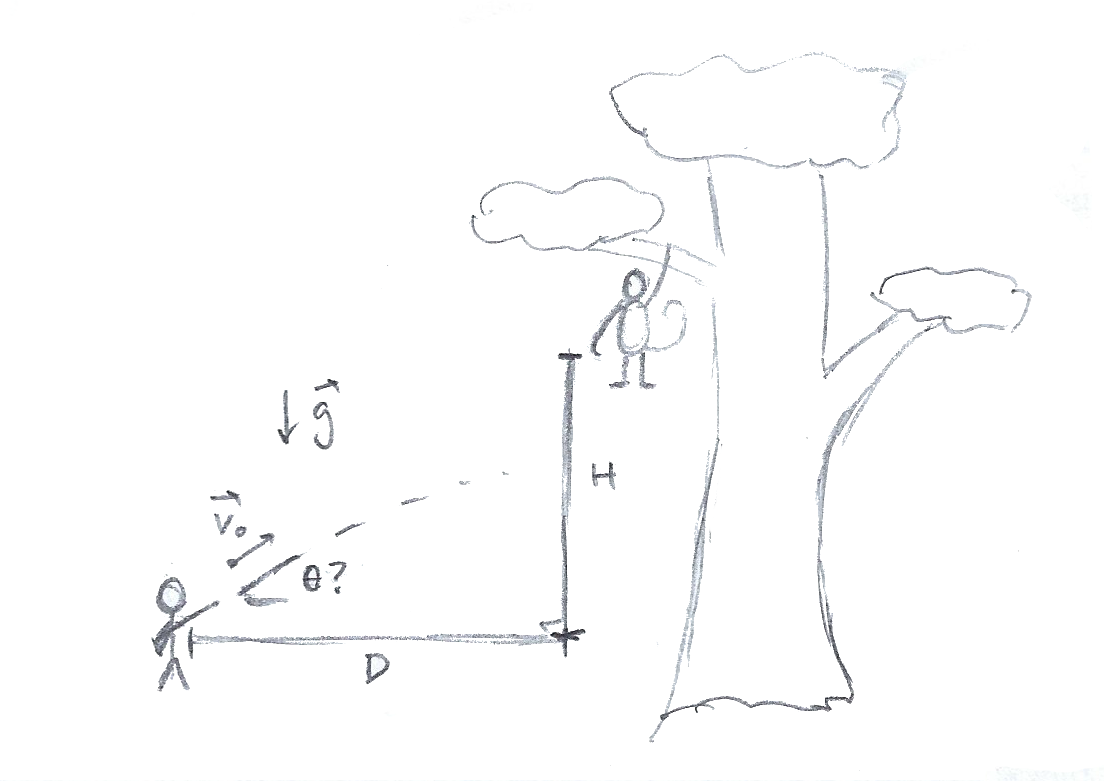 g⃗
H
v⃗₀
θ?
D